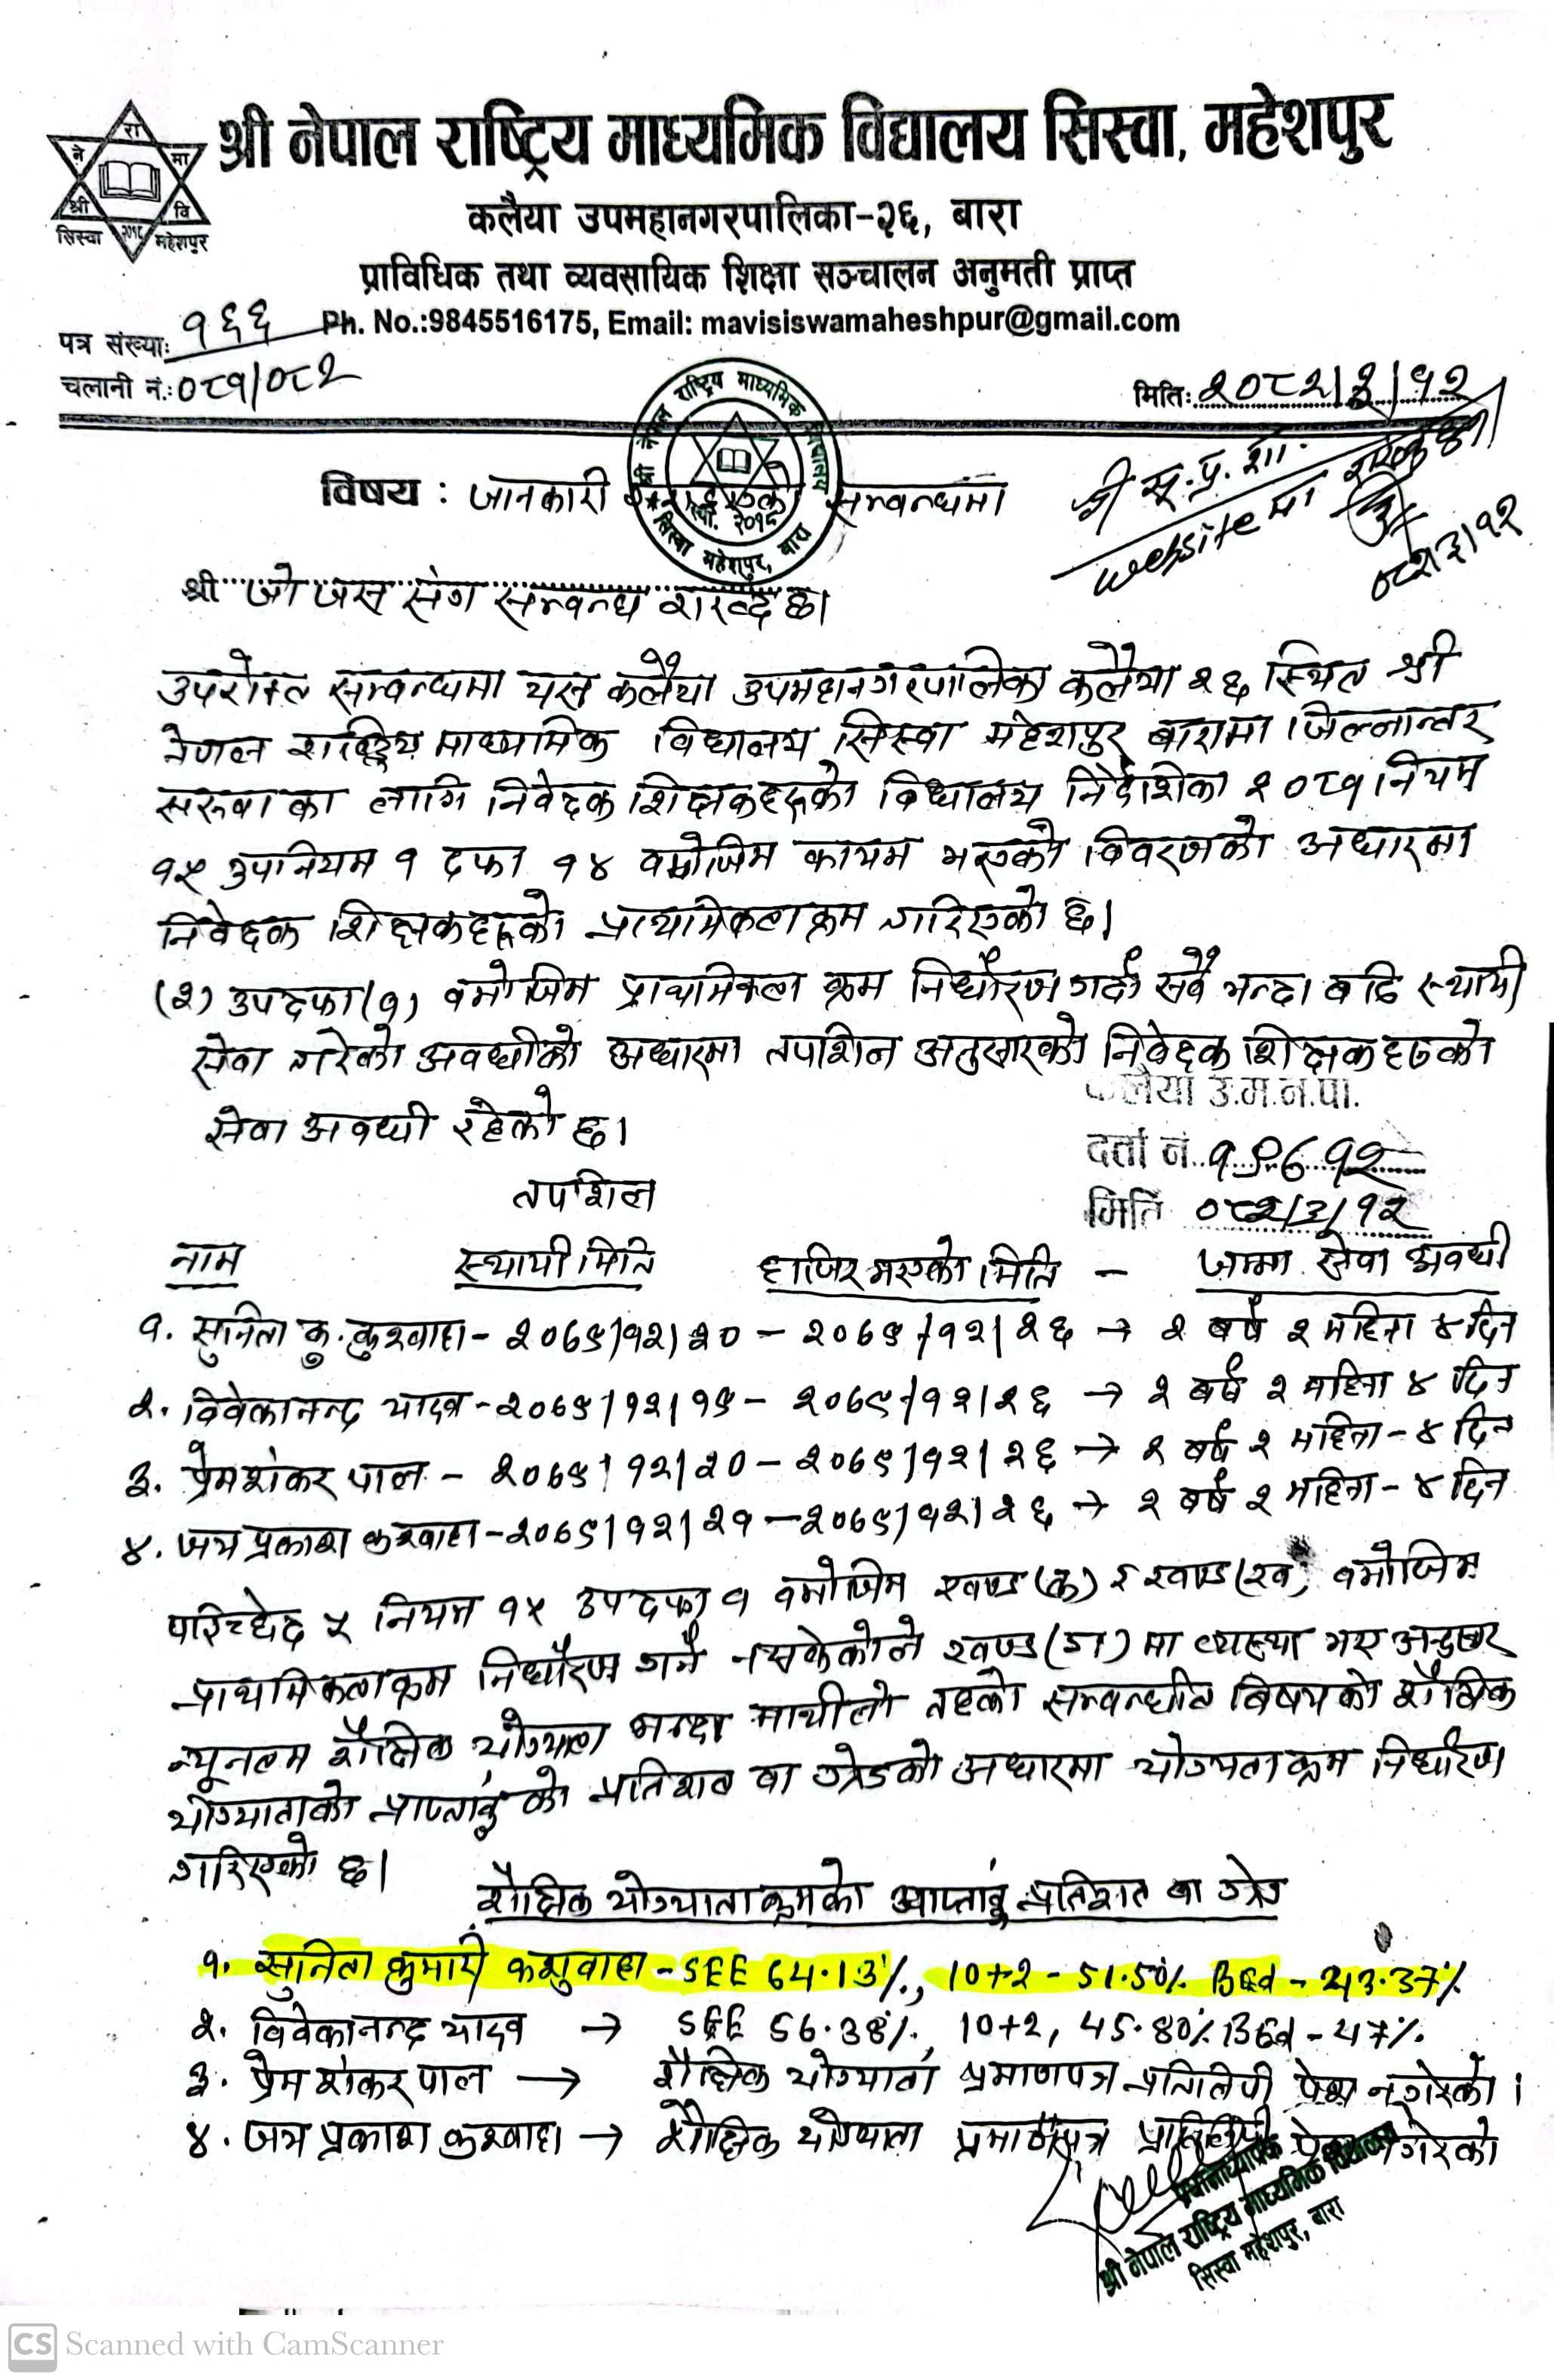 श्री नेपाल राष्ट्रिय माध्यमिक विद्यालय सिस्वा, महेशपुर
ने रा मा श्री वि
सिस्वा २०१८ महेशपुर
कलैया उपमहानगरपालिका-२६, बारा
प्राविधिक तथा व्यवसायिक शिक्षा सञ्चालन अनुमती प्राप्त
Ph. No.:9845516175, Email: mavisiswamaheshpur@gmail.com
पत्र संख्या: १६६
चलानी नं.: ०८१/०८२
मितिः २०८२/३/१२
श्री नेपाल राष्ट्रिय माध्यमिक विद्यालय
स्था. २०१८
सिस्वा महेशपुर, बारा
विषय : जानकारी सम्वन्धमा
श्री सू.प्र.शा.
website मा
०८२/३/१२
श्री जो जस संग सम्वन्ध राख्दछ।
उपरोक्त सम्वन्धमा यस कलैया उपमहानगरपालिका कलैया २६ स्थित श्री
नेपाल राष्ट्रिय माध्यमिक विद्यालय सिस्वा महेशपुर बारामा जिल्लान्तर
सरुवा का लागि निवेदक शिक्षकहरुको विद्यालय निर्देशिका २०८१ नियम
१५ उपनियम १ दफा १४ वमोजिम कायम भएको विवरणको अधारमा
निवेदक शिक्षकहरुको प्राथमिकता क्रम गरिएको छ।
(२) उपदफा (१) वमोजिम प्राथमिकता क्रम निर्धारण गर्दा सवै भन्दा बढि स्थायी
सेवा गरेको अवधीको अधारमा तपशिल अनुसारको निवेदक शिक्षकहरुको
सेवा अवधी रहेको छ।
कलैया उ.म.न.पा.
दर्ता नं. १९७१२
मिति ०८२/३/१२
तपशिल
नाम स्थायी मिति हाजिर भएको मिति - जम्मा सेवा अवधी
१. सुनिता कु. कुश्वाहा - २०७९/१२/२० - २०७९/१२/२६ → २ बर्ष २ महिना ४ दिन
२. विवेकानन्द यादव - २०७९/१२/१९ - २०७९/१२/२६ → २ बर्ष २ महिना ४ दिन
३. प्रेमशंकर पाल - २०७९/१२/२० - २०७९/१२/२६ → २ बर्ष २ महिना - ४ दिन
४. जय प्रकाश कुश्वाहा - २०७९/१२/२१ - २०७९/१२/२६ → २ बर्ष २ महिना - ४ दिन
परिच्छेद ५ नियम १५ उपदफा १ वमोजिम खण्ड (क) र खण्ड (ख) वमोजिम
प्राथमिकताक्रम निर्धारण गर्न नसकेकोले खण्ड (ग) मा व्यस्था भए अनुसार
न्यूनतम शैक्षिक योग्यता भन्दा माथील्लो तहको सम्वन्धीत बिषयको शैक्षिक
योग्याताको प्राप्ताङ्क को प्रतिशत वा ग्रेडको अधारमा योग्यता क्रम निर्धारण
गरिएको छ।
शैक्षिक योग्याता क्रमको प्राप्ताङ्क प्रतिशत वा ग्रेड
१. सुनिता कुमारी कशुवाहा - SEE 64.13%, 10+2 - 51.50% BEd - 43.37%
२. विवेकानन्द यादव → SEE 56.38%, 10+2, 45.80% BEd - 47%
३. प्रेम शंकर पाल → शैक्षिक योग्याता प्रमाणपत्र प्रतिलिपी पेश नगरेको।
४. जय प्रकाश कुश्वाहा → शैक्षिक योग्याता प्रमाणपत्र प्रतिलिपी पेश नगरेको
प्रधानाध्यापक
श्री नेपाल राष्ट्रिय माध्यमिक विद्यालय
सिस्वा महेशपुर, बारा
CS Scanned with CamScanner